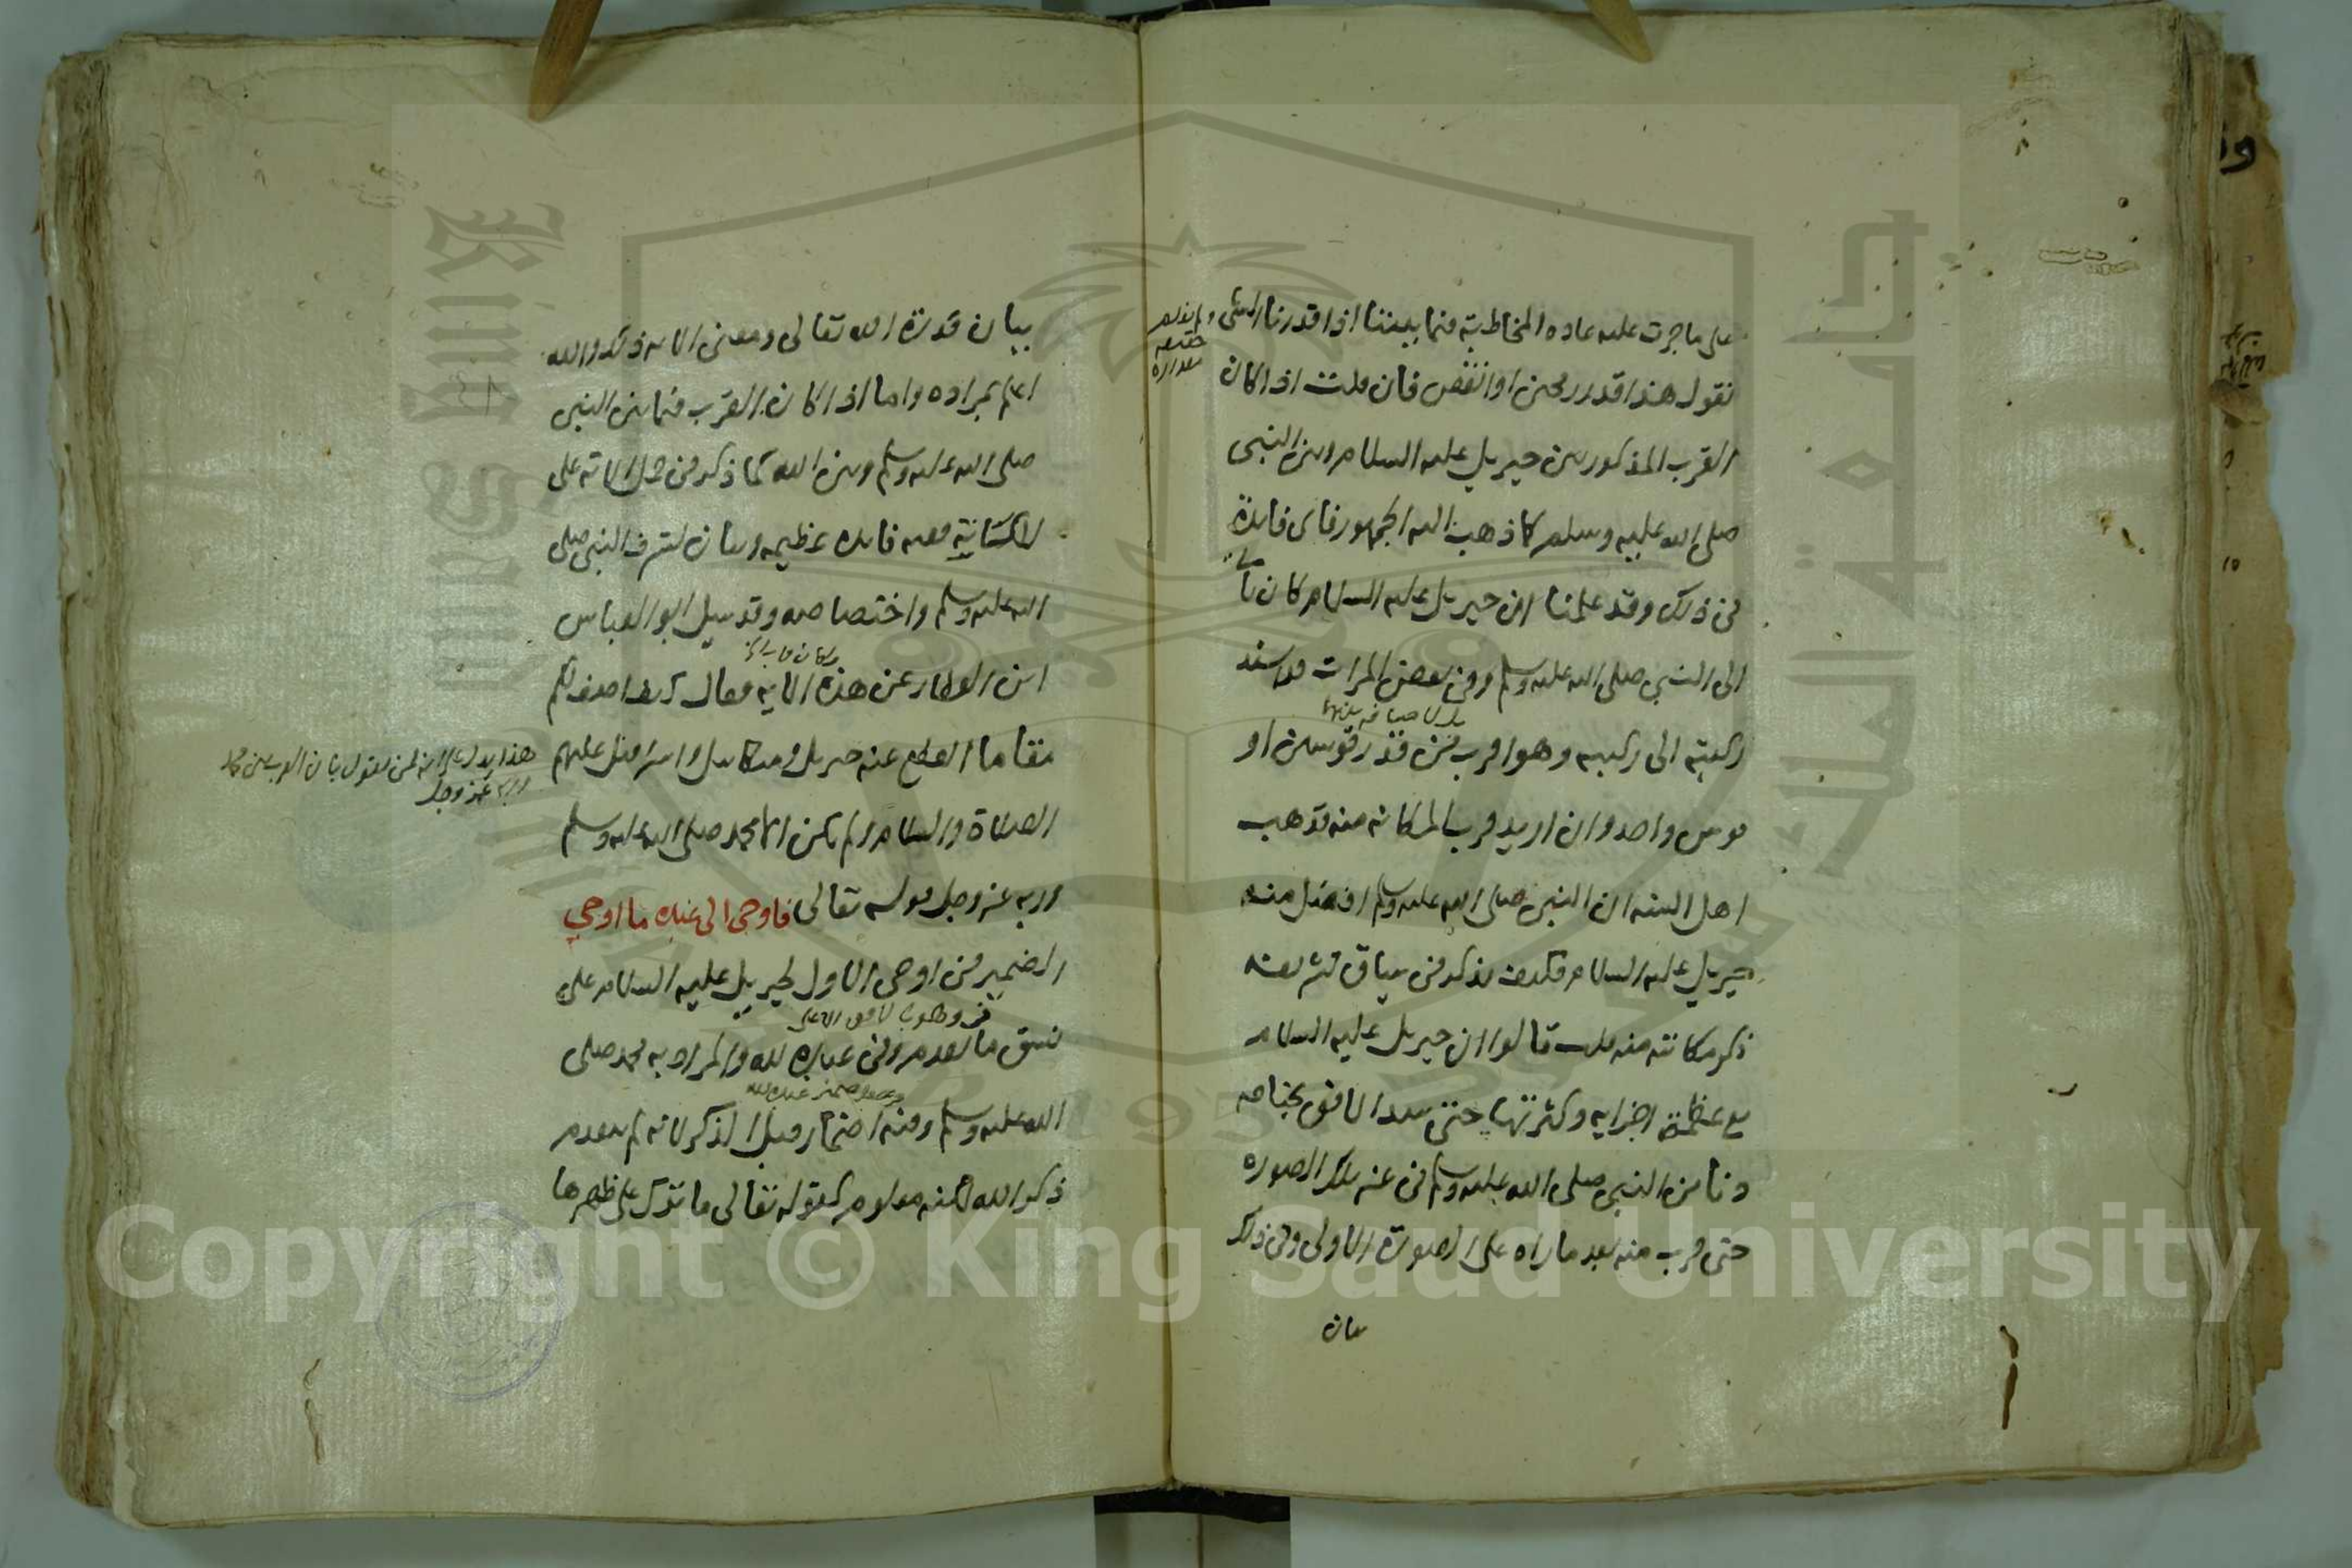 على ما جرت عليه عاده المخاطبة فيما بيننا اذا قدرنا الشى
نقول هذا قدر رمحين او انقص فان قلت اذا كان
القرب المذكور بين جبريل عليه السلام وبين النبى
صلى الله عليه وسلم كما ذهب اليه الجمهور فاى فايدة
فى ذلك وقد علمنا ان جبريل عليه السلام كان ياتى
الى النبي صلى الله عليه وسلم وفى بعض المرات قد اسند
بلا مسافة بينهما
ركبته الى ركبته وهو اقرب من قدر قوسين او
قوس واحد وان اريد قرب المكانه منه فذهب
اهل السنه ان النبى صلى الله عليه وسلم افضل منه
جبريل عليه السلام فكيف يذكر فى سياق تشريفه
ذكر مكانته منه قلت قالوا ان جبريل عليه السلام
مع عظمة اجزايه وكثرتها حتى سد الافق بجناحه
دنا من النبى صلى الله عليه وسلم فى غير تلك الصوره
حتى قرب منه بعد ما راه على الصورة الاولى وفى ذلك
بيان
بيان قدرة الله تعالى ومعنى الايه ذكره والله
اعلم بمراده واما اذا كان القرب فيما بين النبى
صلى الله عليه وسلم وبين الله كما ذكر من حمل الاية على
ففيه فايده عظيمه وبيان لشرف النبى صلى
الله عليه وسلم واختصاصه وقد سيل ابو العباس
ابن العطار عن هذه الايه فقال كيف اصف لكم
مقاما انقطع عنه جبريل وميكاييل واسرافيل عليهم
الصلاة والسلام لم يكن الا محمد صلى الله عليه وسلم
وربه عز وجل قوله تعالى فاوحى الى عبده ما اوحى
هذا يدل على انه ممن يقول بان القرب بين محمد
وربه عز وجل
الضمير فى اوحى الاول لجبريل عليه السلام على
وهو بالافق الاعلى
نسق ما تقدم وفى عبده لله والمراد به محمد صلى
الله عليه وسلم وفيه اضمار قبل الذكر لانه لم يتقدم
ذكر الله لكنه معلوم كقوله تعالى ما ترك على ظهرها
Copyright © King Saud University